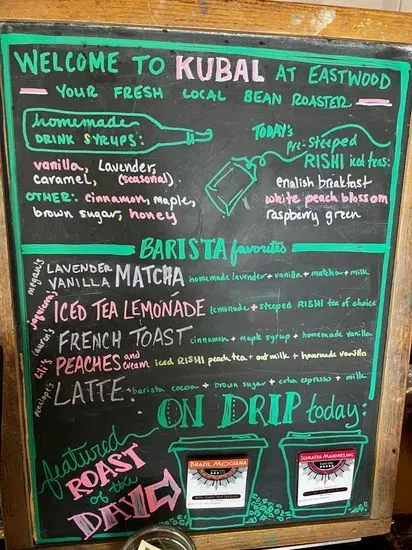 WELCOME TO KUBAL AT EASTWOOD
YOUR FRESH LOCAL BEAN ROASTER
homemade
DRINK SYRUPS:
vanilla, lavender,
caramel, (seasonal)
OTHER: cinnamon, maple,
brown sugar, honey
TODAY'S
Pre-steeped
RISHI iced teas:
english breakfast
white peach blossom
raspberry green
BARISTA favorites
megan's
LAVENDER
VANILLA MATCHA
homemade lavender + vanilla + matcha + milk
ICED TEA LEMONADE
lemonade + steeped RISHI tea of choice
lauren's
FRENCH TOAST
cinnamon + maple syrup + homemade vanilla
lili's
PEACHES and cream
iced RISHI peach tea + oat milk + homemade vanilla
penelope's
LATTE
barista cocoa + brown sugar + extra espresso + milk
ON DRIP today:
featured
ROAST
of the
DAY
BRAZIL MOGIANA
SUMATRA MANDHELING